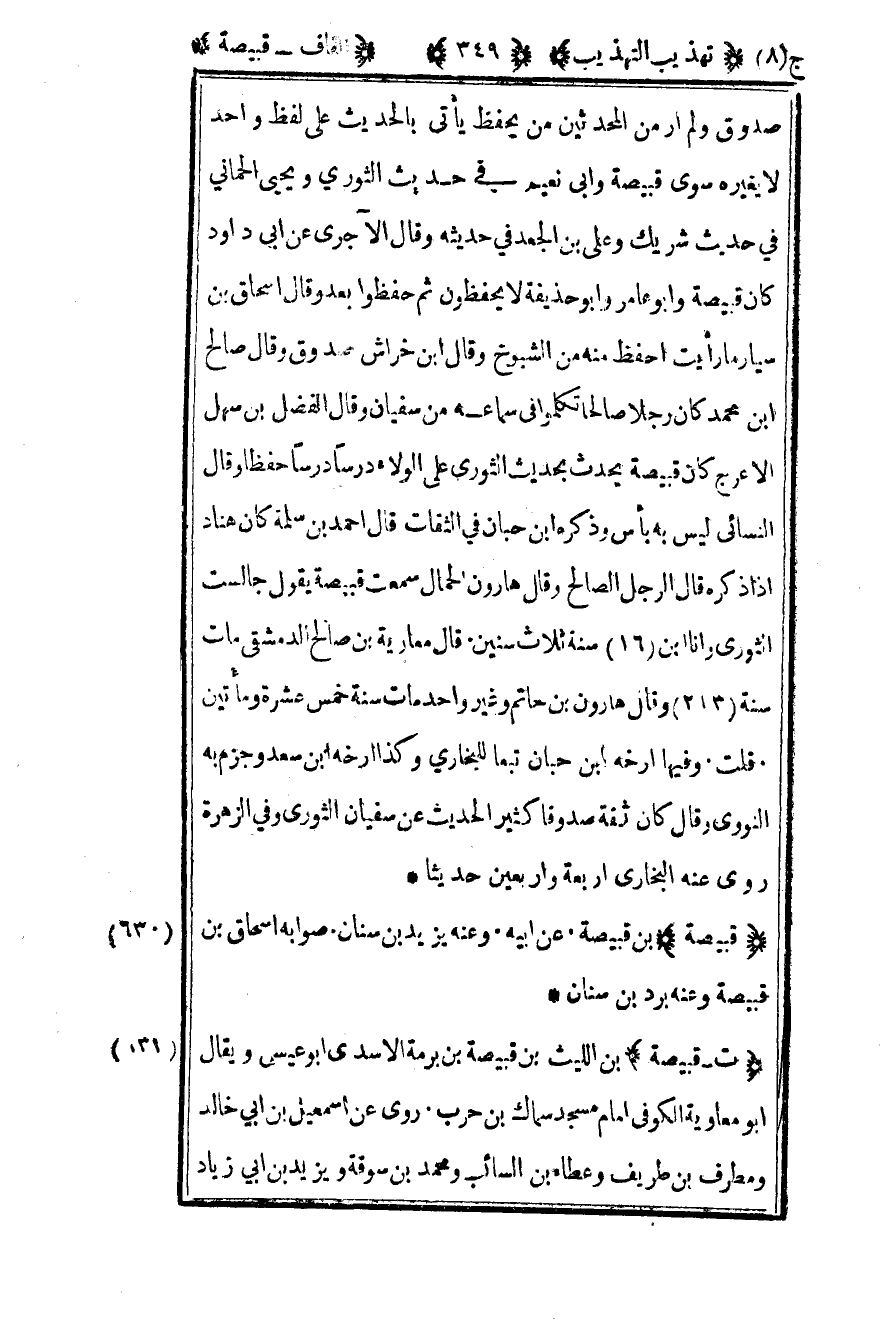 ج(٨) ﴿ تهذيب التهذيب ﴾ ﴿ ٣٤٩ ﴾ ﴿ القاف ـ قبيصة ﴾
صدوق ولم ار من المحدثين من يحفظ يأتى بالحديث على لفظ واحد
لا يغيره سوى قبيصة وابى نعيم في حديث الثوري ويحيى الحماني
في حديث شريك وعلى بن الجعد في حديثه وقال الآجرى عن ابى داود
كان قبيصة وابو عامر وابو حذيفة لا يحفظون ثم حفظوا بعد وقال اسحاق بن
سيار ما رأيت احفظ منه من الشيوخ وقال ابن خراش صدوق وقال صالح
ابن محمد كان رجلا صالحا تكلموا فى سماعه من سفيان وقال الفضل بن سهل
الاعرج كان قبيصة يحدث بحديث الثورى على الولاء درسًا درسًا حفظا وقال
النسائى ليس به بأس وذكره ابن حبان في الثقات قال احمد بن سلمة كان هناد
اذا ذكره قال الرجل الصالح وقال هارون الحمال سمعت قبيصة يقول جالست
الثورى وانا ابن (١٦) سنة ثلاث سنين٠ قال معاوية بن صالح الدمشقى مات
سنة (٢١٣) وقال هارون بن حاتم وغير واحد مات سنة خمس عشرة ومأتين
٠ قلت ٠ وفيها ارخه ابن حبان تبعا للبخاري وكذا ارخه ابن سعد وجزم به
النووى وقال كان ثقة صدوقا كثير الحديث عن سفيان الثورى وفي الزهرة
روى عنه البخارى اربعة واربعين حديثا *
﴿ قبيصة ﴾ بن قبيصة ٠ عن ابيه ٠ وعنه يزيد بن سنان ٠ صوابه اسحاق بن (٦٣٠)
قبيصة وعنه برد بن سنان *
﴿ ت ـ قبيصة ﴾ بن الليث بن قبيصة بن برمة الاسدى ابو عيسى ويقال
ابو معاوية الكوفى امام مسجد سماك بن حرب ٠ روى عن اسمعيل بن ابي خالد
ومطرف بن طريف وعطاء بن السائب ومحمد بن سوقة ويزيد بن ابي زياد